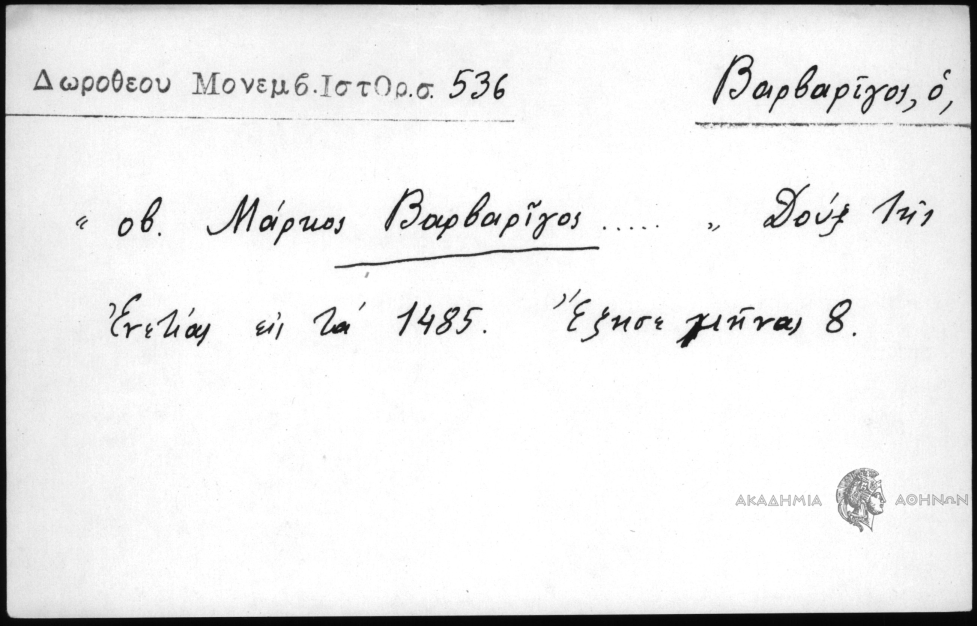 Δωροθεου Μονεμβ.Ιστορ.σ. 536
Βαρβαρῖγος, ὁ,
" οβ. Μάρκος Βαρβαρῖγος ..... „ Δούξ τῆς
Ἐνετίας εἰς τά 1485. Ἔζησε μῆνας 8.
ΑΚΑΔΗΜΙΑ ΑΘΗΝΩΝ